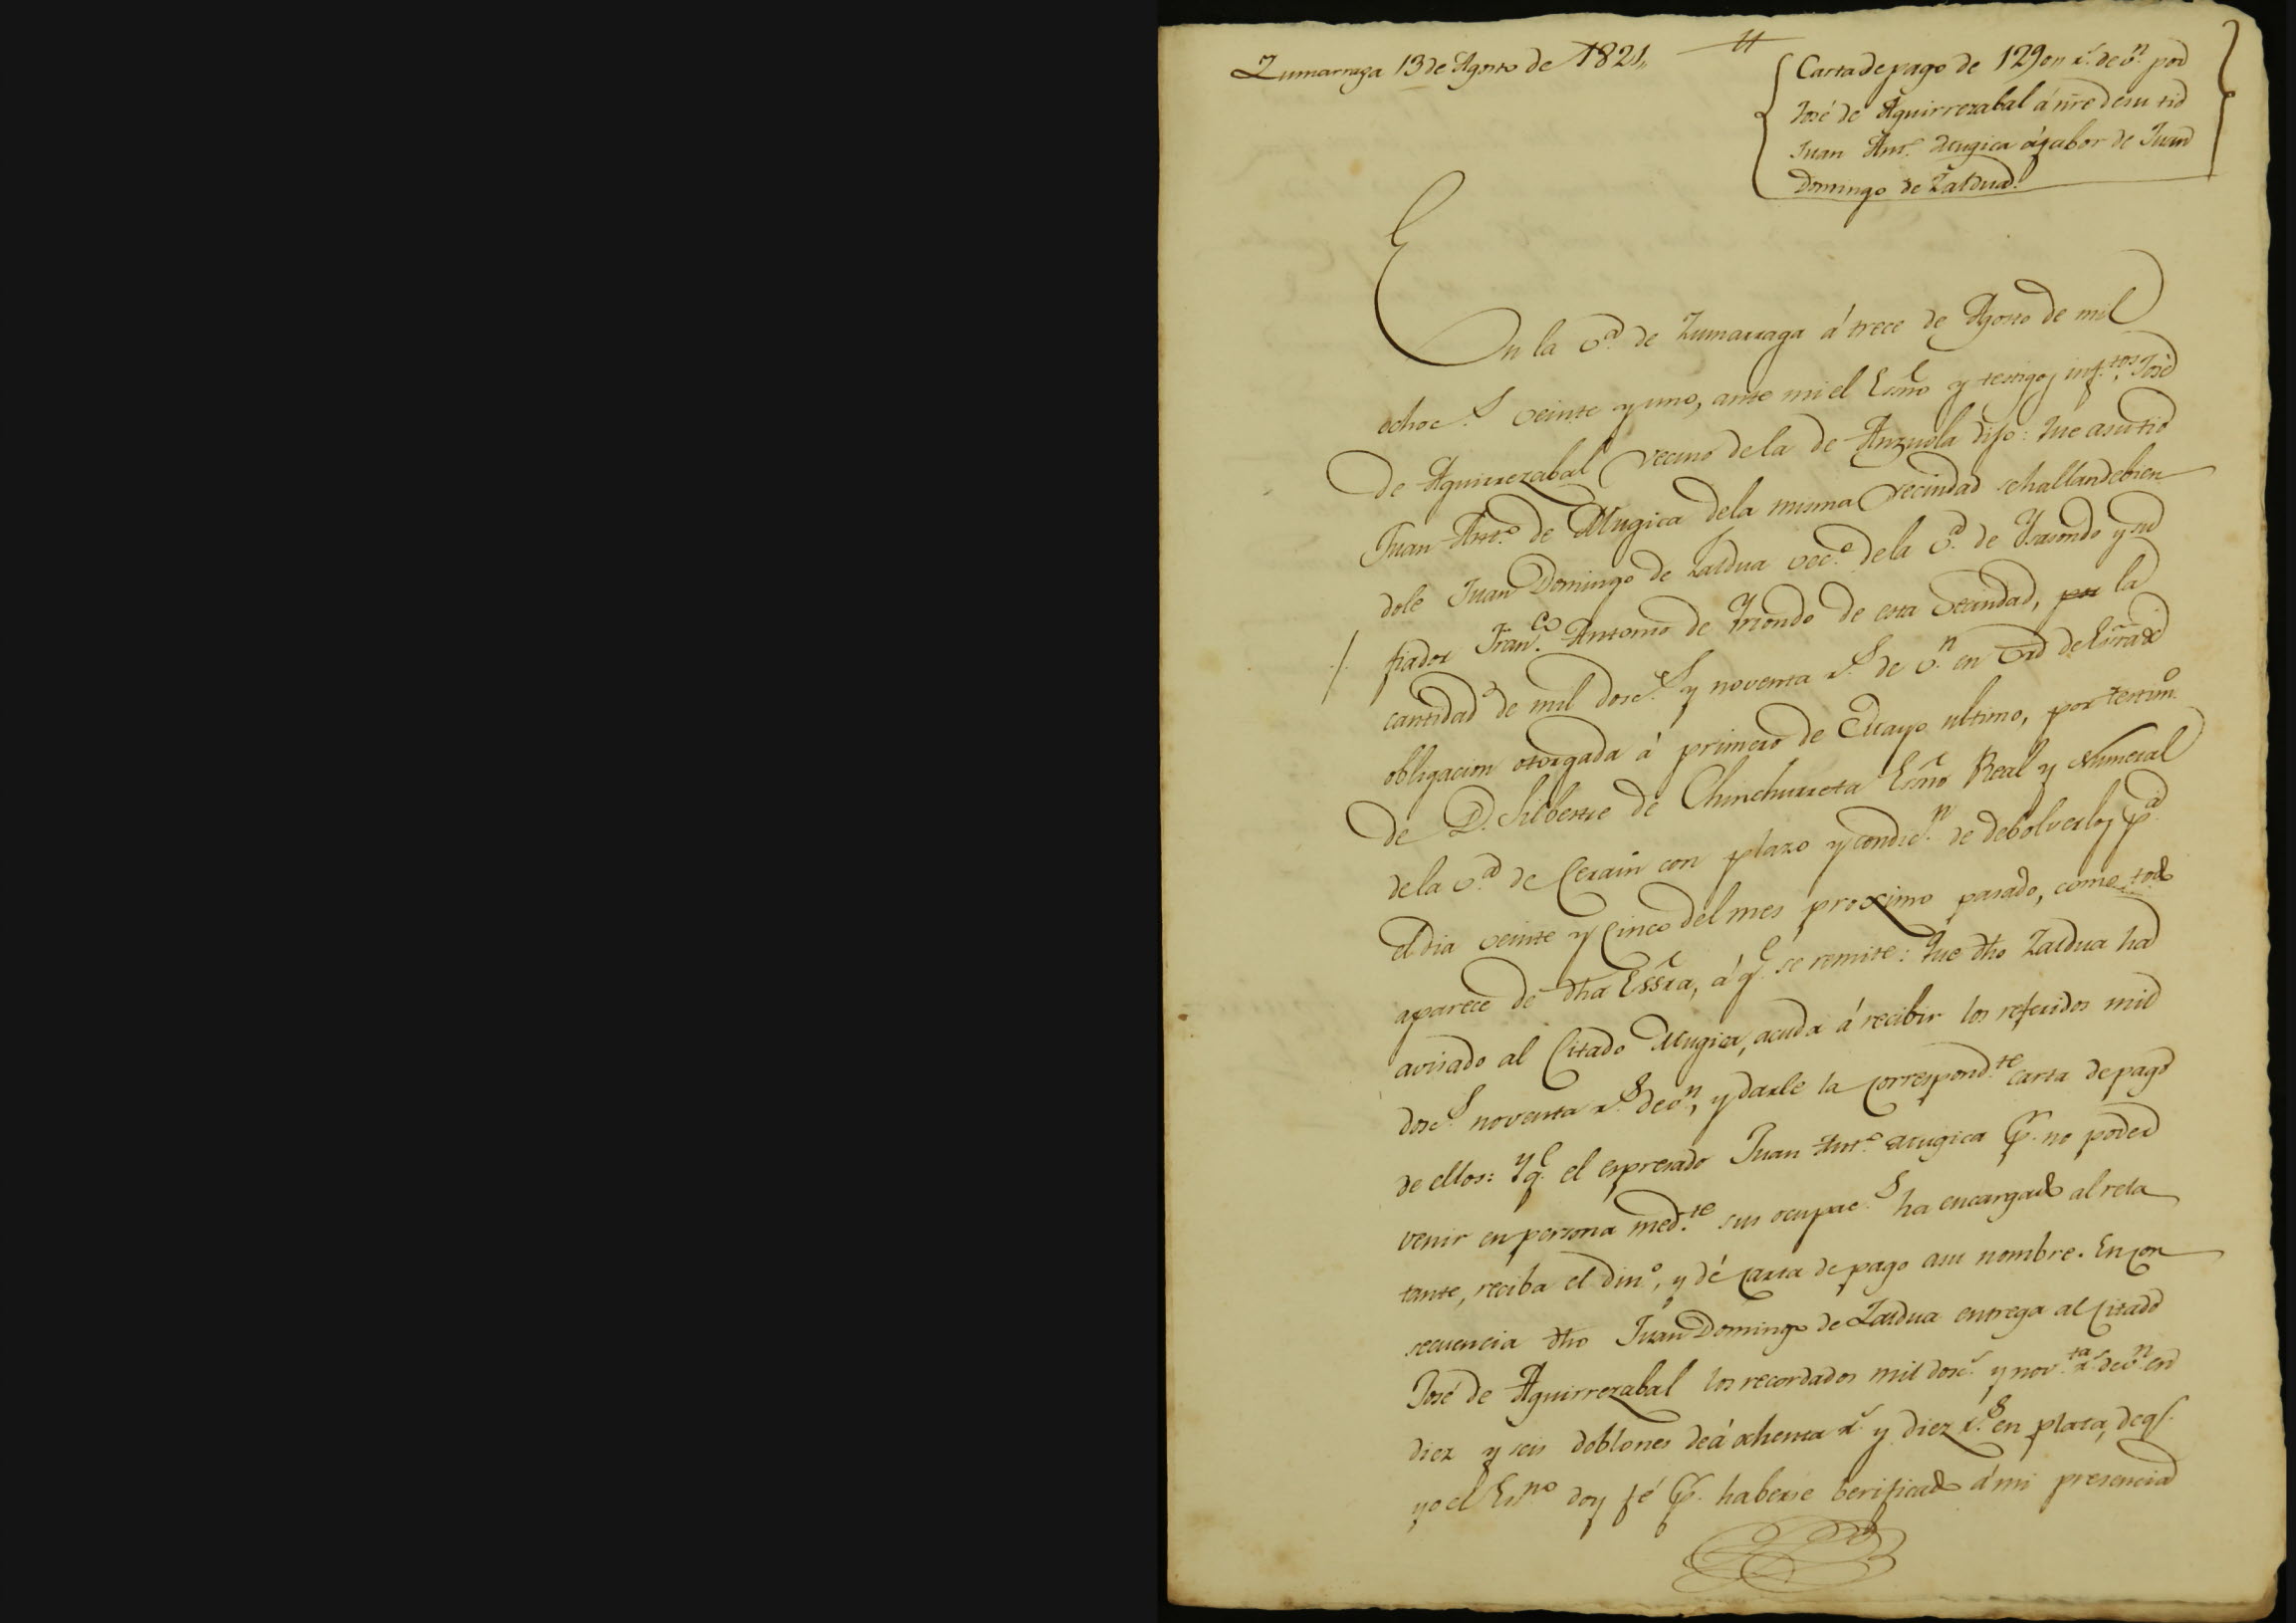 Zumarraga 13 de Agosto de 1821,,
Carta de pago de 1290,, r.ˢ de v.ⁿ por
José de Aguirrezabal á nre de su tio
Juan Ant.º Mugica á fabor de Juan
Domingo de Zaldua.
En la v.ª de Zumarraga á trece de Agosto de mil
ochoc.ˢ veinte y uno, ante mi el Esno y testigos inf.tos José
de Aguirrezabal vecino de la de Anzuola dijo: Que a su tio
Juan Ant.º de Mugica de la misma vecindad se hallan debien
dole Juan Domingo de Zaldua vec.º de la v.ª de Ysasondo y su
fiador Fran.co Antonio de Yriondo de esta vecindad, por la
cantidad de mil dosc.ˢ y noventa r.ˢ de v.ⁿ en vrd de Esra de
obligacion otorgada á primero de Mayo ultimo, por testim.º
de D. Silbestre de Chinchurreta Esno Real y Numeral
de la v.ª de Cerain con plazo y condic.ⁿ de debolverlos p.ª
el dia veinte y cinco del mes proximo pasado, como todo
aparece de dha Essra, á q.ᵉ se remite: Que dho Zaldua ha
avisado al citado Mugica, acuda á recibir los referidos mil
dosc.ˢ noventa r.ˢ de v.ⁿ, y darle la correspond.te carta de pago
de ellos: Y q.ᵉ el espresado Juan Ant.º Mugica p.ʳ no poder
venir en persona med.te sus ocupac.ˢ ha encargado al rela
tante, reciba el din.º, y dé carta de pago a su nombre. En con
secuencia dho Juan Domingo de Zaldua entrega al citado
José de Aguirrezabal los recordados mil dosc.ˢ y nov.ta r.ˢ de v.ⁿ en
diez y seis doblones de á ochenta r.ˢ y diez r.ˢ en plata, de q.ᵉ
yo el Es.no doy fé p.ʳ haberse berificado á mi presencia